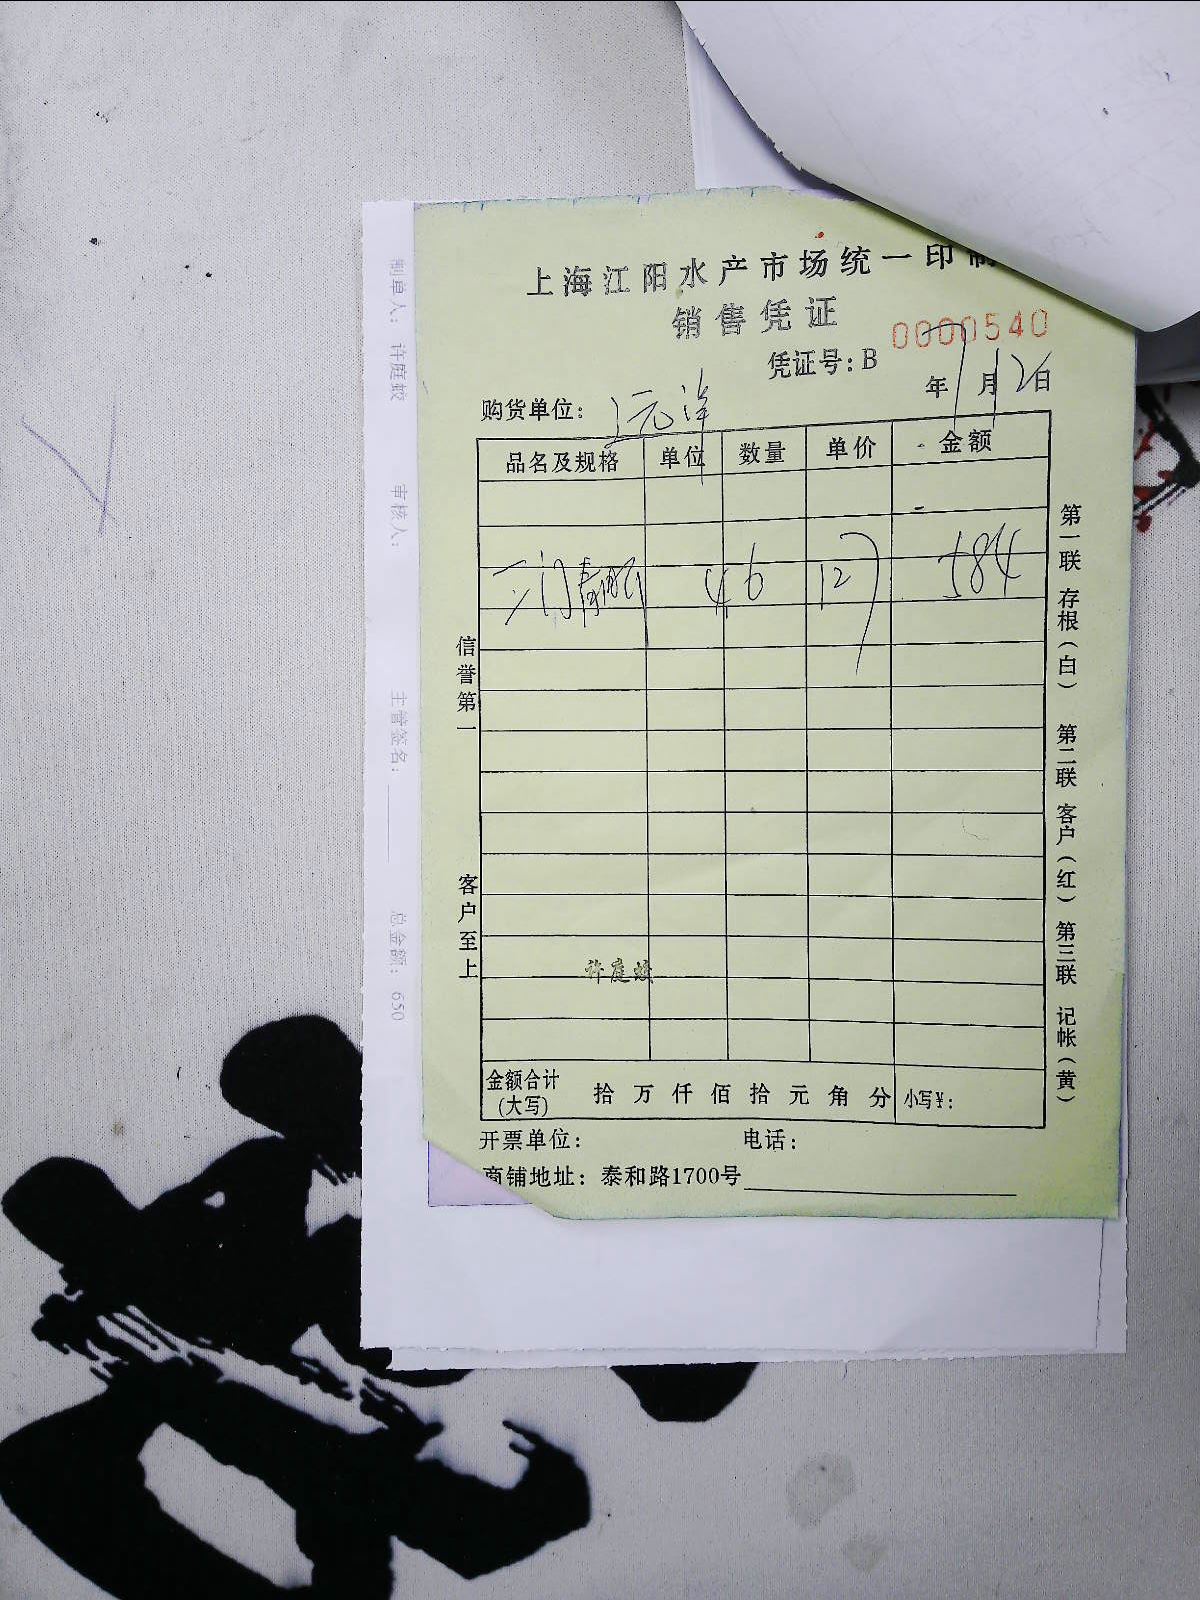 上海江阳水产市场统一印制
销售凭证
凭证号：B 0000540
年1月26日
购货单位：远洋
品名及规格 单位 数量 单价 金额
三门青 46 127 584
信誉第一
客户至上
第一联 存根（白） 第二联 客户（红） 第三联 记帐（黄）
许庭蛟
金额合计（大写） 拾 万 仟 佰 拾 元 角 分 小写¥：
开票单位： 电话：
商铺地址：泰和路1700号
制单人：许庭蛟 审核人： 主管签名： 总金额：650